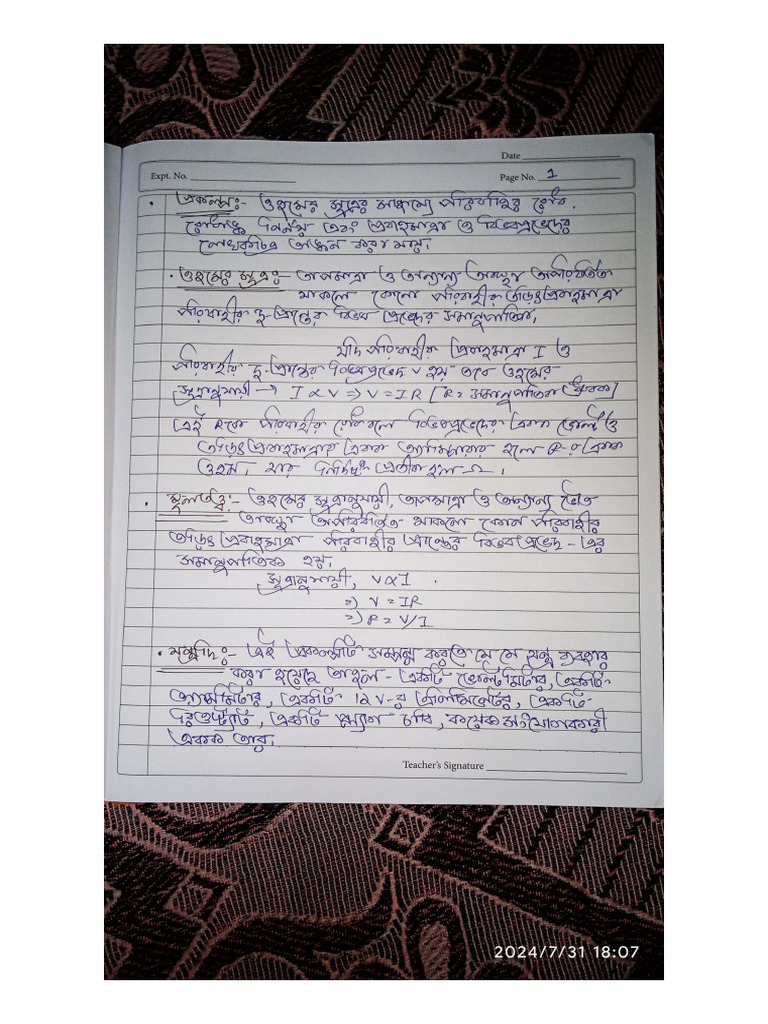 Date
Expt. No.
Page No. 1
প্রকল্প:- ওহমের সূত্রের সাহায্যে পরিবাহীর রোধ
নির্ণয় এবং প্রবাহমাত্রা ও বিভবপ্রভেদের
লেখচিত্র অঙ্কন করা যায়।
• ওহমের সূত্র:- তাপমাত্রা ও অন্যান্য অবস্থা অপরিবর্তিত
থাকলে কোনো পরিবাহীর তড়িৎপ্রবাহমাত্রা
পরিবাহীর দু-প্রান্তের বিভব প্রভেদের সমানুপাতিক।
যদি পরিবাহীর প্রবাহমাত্রা I ও
পরিবাহীর দু-প্রান্তের বিভবপ্রভেদ V হয় তবে ওহমের
সূত্রানুযায়ী → I ∝ V ⇒ V = IR [R = সমানুপাতিক ধ্রুবক]
এই R কে পরিবাহীর রোধ বলে বিভবপ্রভেদের একক ভোল্ট ও
তড়িৎপ্রবাহমাত্রার একক অ্যাম্পিয়ার হলে R-র একক
ওহম। যার প্রতীক হল Ω।
• মূলতত্ত্ব:- ওহমের সূত্রানুযায়ী, তাপমাত্রা ও অন্যান্য ভৌত
অবস্থা অপরিবর্তিত থাকলে কোন পরিবাহীর
তড়িৎ প্রবাহমাত্রা পরিবাহীর প্রান্তের বিভবপ্রভেদ-এর
সমানুপাতিক হয়।
সূত্রানুযায়ী, V∝I
⇒ V = IR
⇒ R = V/I
• যন্ত্রাদি:- এই প্রকল্পটি সম্পন্ন করতে যে যে যন্ত্র ব্যবহার
করা হয়েছে তাহল - একটি ভোল্টমিটার, একটি
অ্যামমিটার, একটি 12V-র এলিমিনেটর, একটি
রিওস্ট্যাট, একটি প্লাগ চাবি, কয়েক সংযোগকারী
একক তার।
Teacher's Signature
2024/7/31 18:07